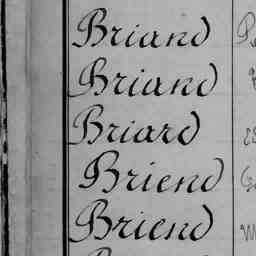 Briand
Briand
Briard
Briend
Briend